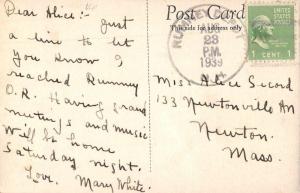 Dear Alice:- Just
a line to let
you know I
reached Rumney
O.K. Having grand
meetings and music
Will be home
Saturday night.
Love. Mary White.
Post Card
This side for address only
RUMNEY
23
P.M.
1939
UNITED STATES
POSTAGE
1 CENT 1
Miss Alice Secord
133 Newtonville Av
Newton.
Mass.